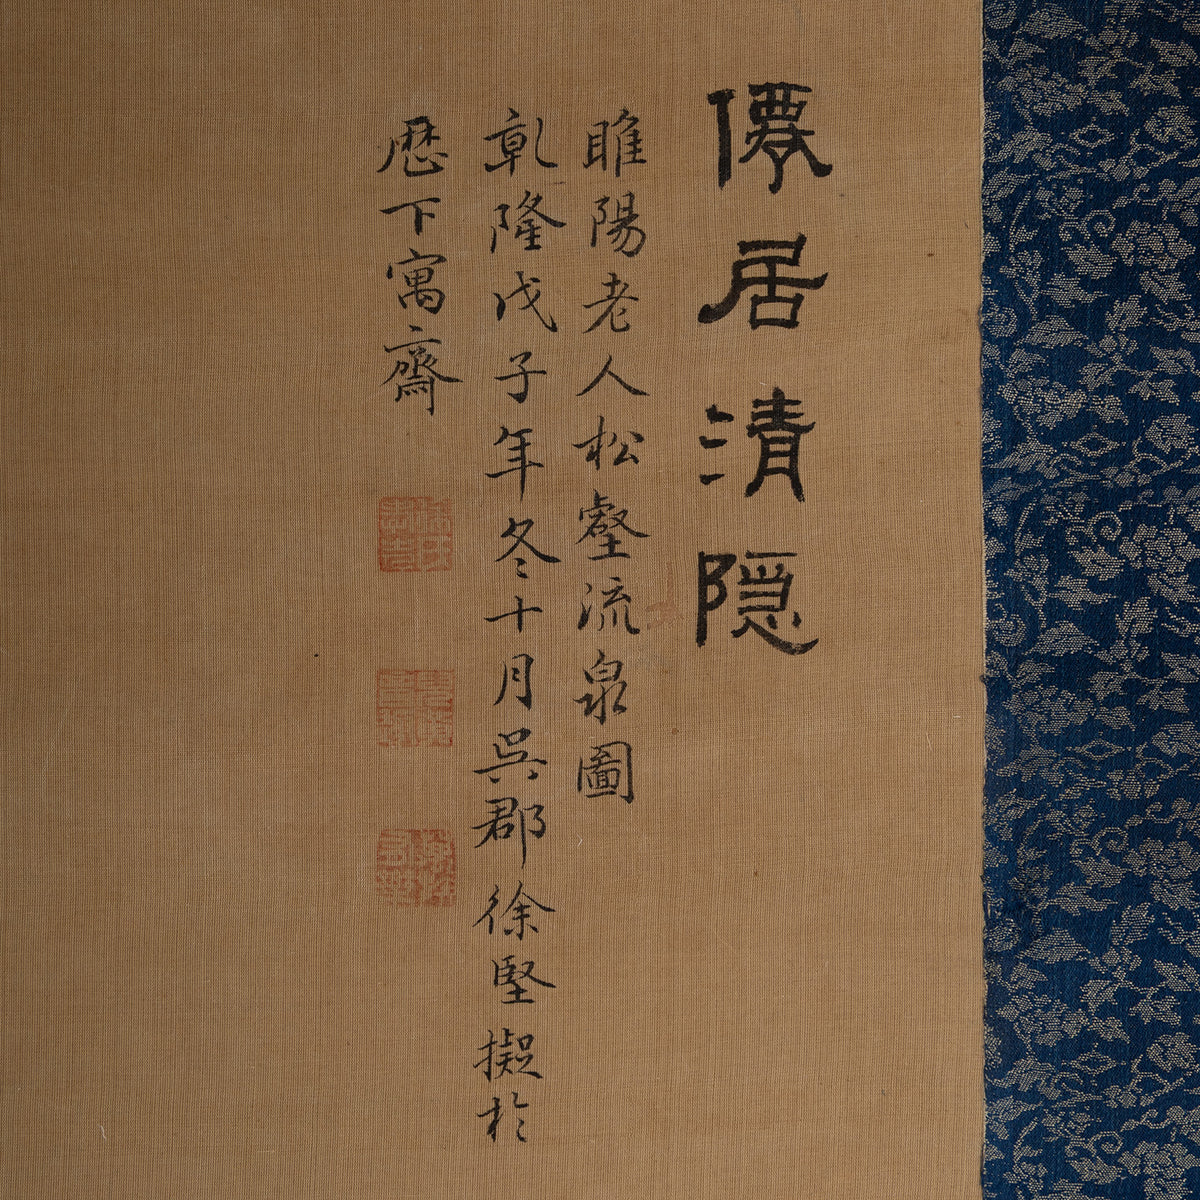 僊居清隱
睢陽老人松壑流泉圖
乹隆戊子年冬十月吳郡徐堅擬於
歷下寓齋